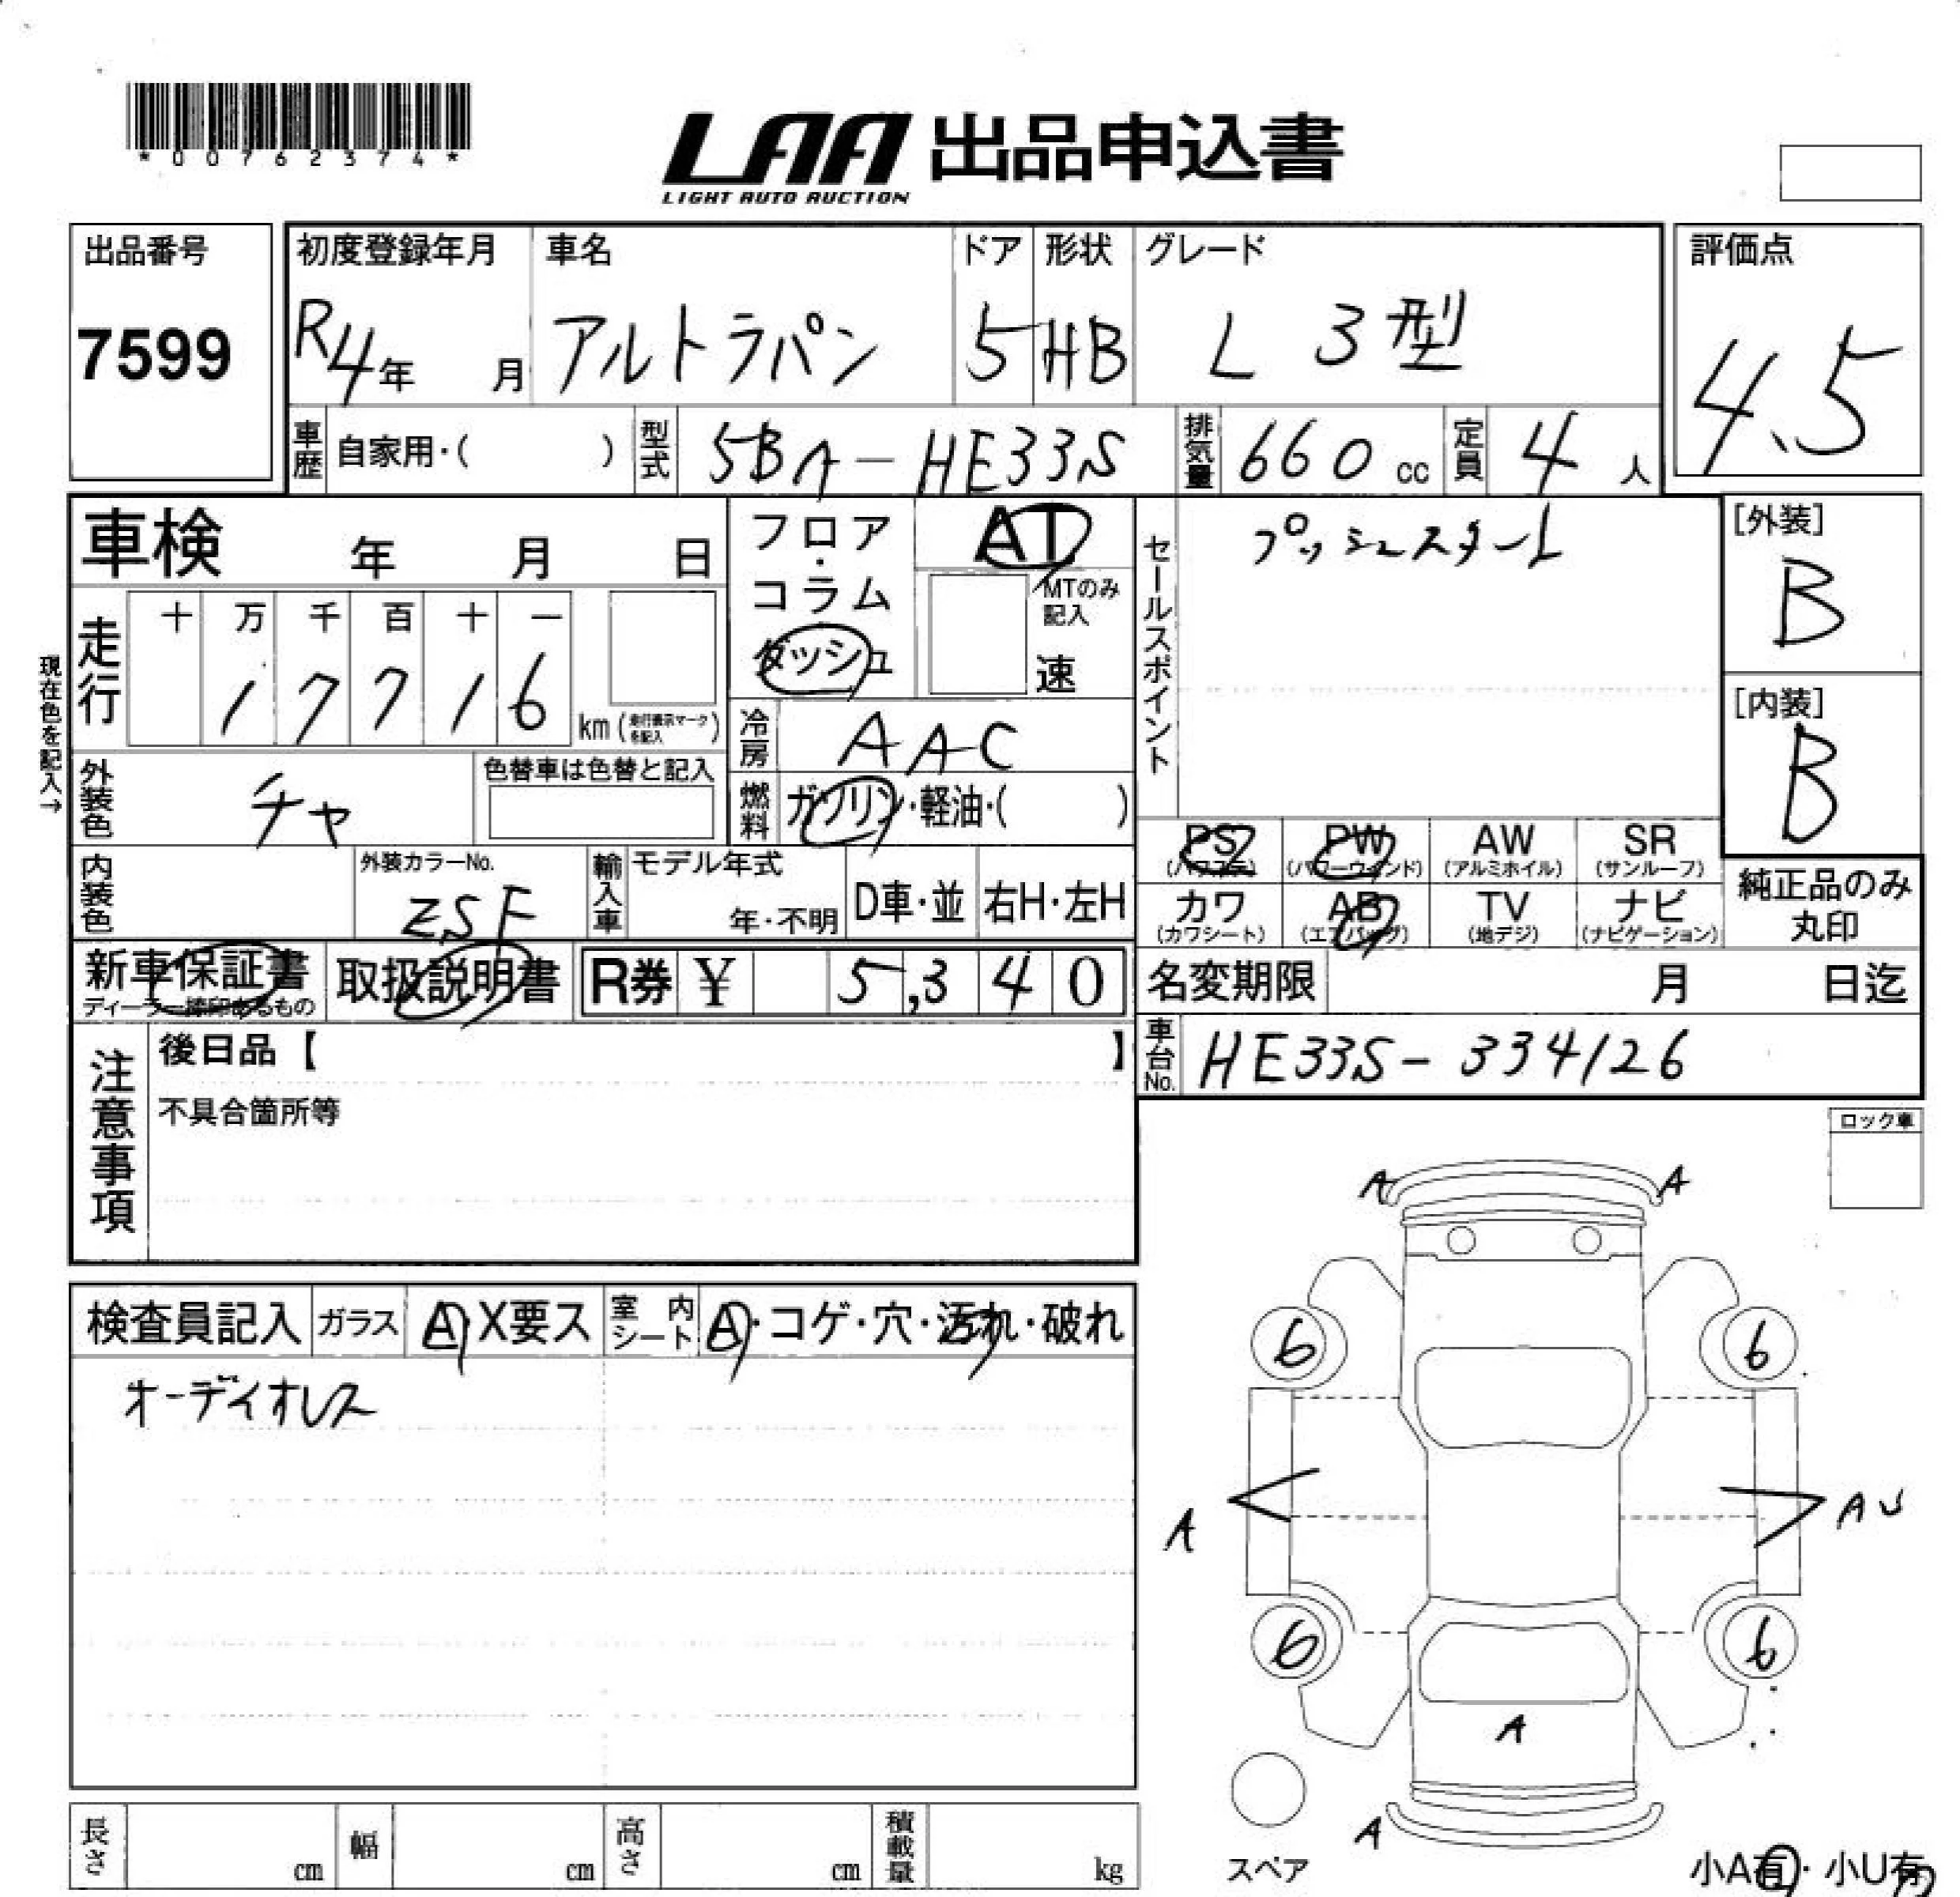 *00762374*
LAA 出品申込書
LIGHT AUTO AUCTION
出品番号
7599
初度登録年月
R4年 月
車名
アルトラパン
ドア
5
形状
HB
グレード
L 3型
評価点
4.5
車歴 自家用・( )
型式 5BA-HE33S
排気量 660 cc
定員 4 人
車検 年 月 日
フロア・コラム
ダッシュ
AT
MTのみ記入
速
セールスポイント
プッシュスタート
[外装]
B
[内装]
B
現在色を記入→
走行
十 万 千 百 十 一
1 7 7 1 6
km (走行表示マークを記入)
冷房 AAC
外装色 チャ
色替車は色替と記入
燃料 ガソリン・軽油・( )
PS (パワステ)
PW (パワーウィンド)
AW (アルミホイル)
SR (サンルーフ)
内装色
外装カラーNo.
ZSF
輸入車 モデル年式
年・不明
D車・並
右H・左H
カワ (カワシート)
AB (エアバッグ)
TV (地デジ)
ナビ (ナビゲーション)
純正品のみ
丸印
新車保証書
ディーラー捺印あるもの
取扱説明書
R券 ¥ 5,340
名変期限 月 日迄
車台No. HE33S-334126
注意事項
後日品【 】
不具合箇所等
ロック車
検査員記入
ガラス A・X要ス
室内シート A・コゲ・穴・汚れ・破れ
オーディオレス
A A
6 6
A AU
6 6
A
A
スペア
小A有・小U有
長さ cm
幅 cm
高さ cm
積載量 kg